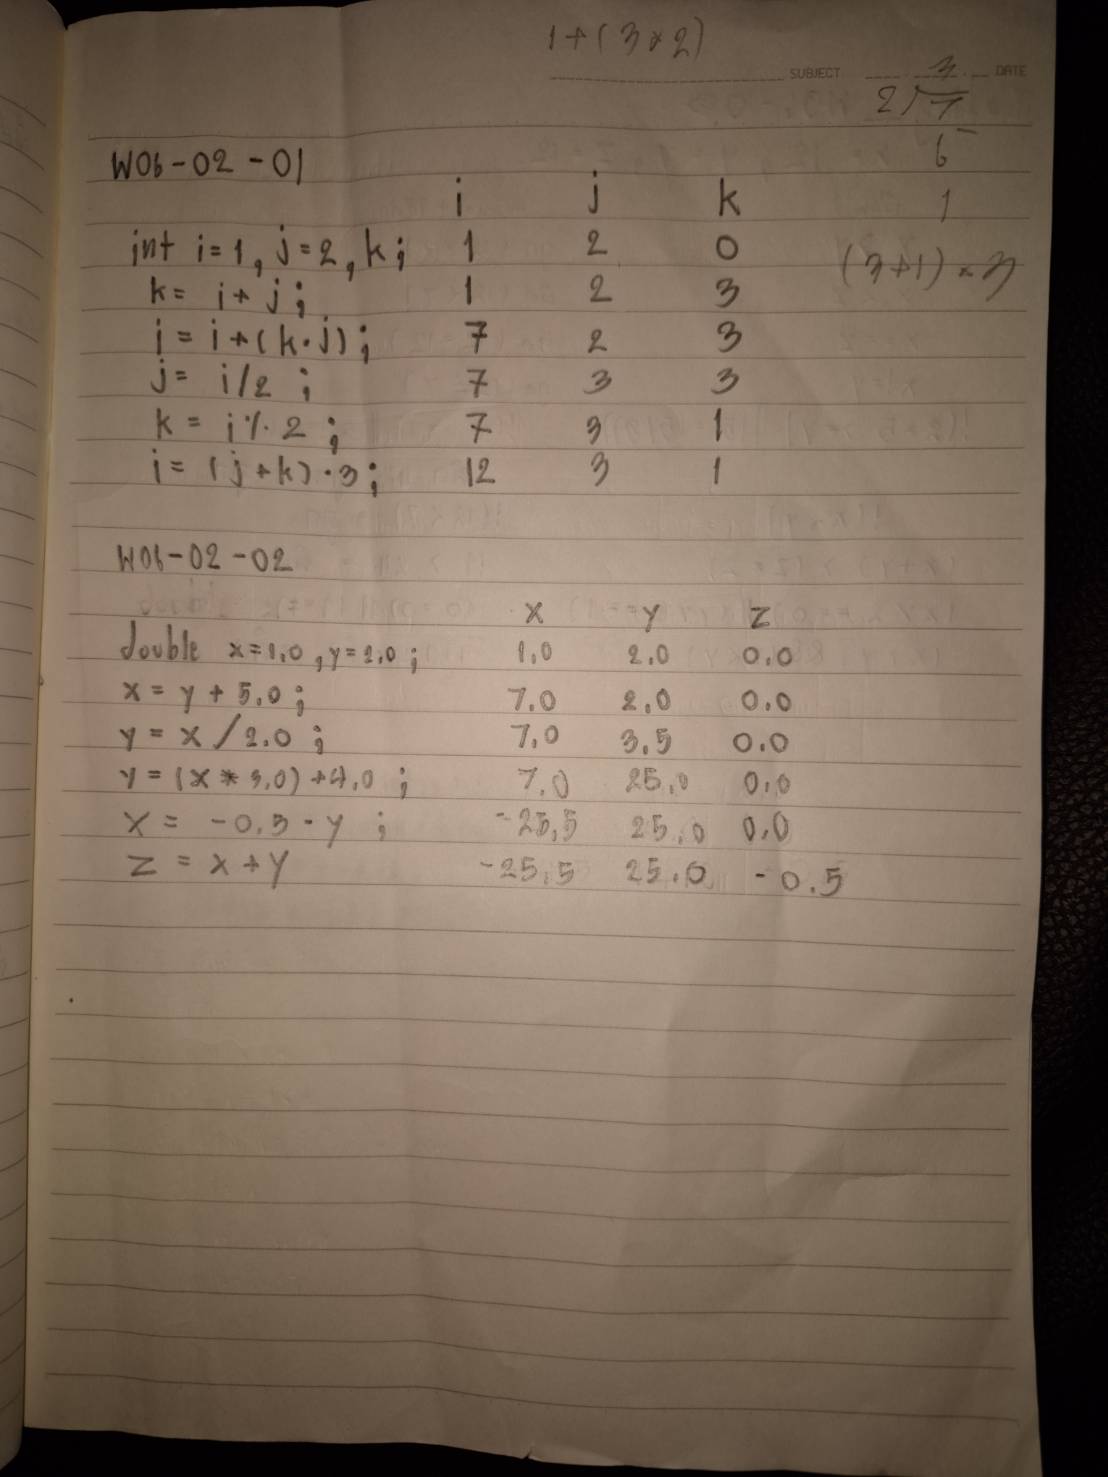 1+(3×2)
SUBJECT DATE
3
2 7
6
1
W06-02-01
i j k
int i=1, j=2, k; 1 2 0
(3+1)×3
k= i+ j; 1 2 3
i = i+(k·j); 7 2 3
j= i/2 ; 7 3 3
k = i%2 ; 7 3 1
i= (j+k)·3; 12 3 1
W06-02-02
X Y Z
double x=1.0, y=2.0; 1.0 2.0 0.0
x= y + 5.0; 7.0 2.0 0.0
y= x /2.0 ; 7.0 3.5 0.0
y=(x*3.0)+4.0 ; 7.0 25.0 0.0
x= -0.5-y ; -25.5 25.0 0.0
z = x+y -25.5 25.0 -0.5